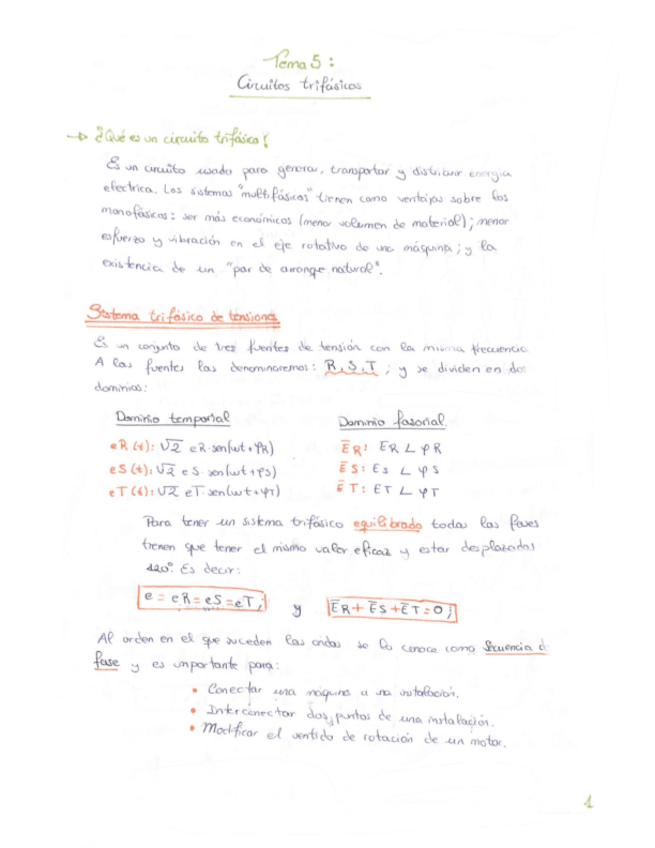 Tema 5:
Circuitos trifásicos
→ ¿Qué es un circuito trifásico?
Es un circuito usado para generar, transportar y distribuir energía
electrica. Los sistemas "multifásicos" tienen como ventajas sobre los
monofásicos: ser más económicos (menor volumen de material); menor
esfuerzo y vibración en el eje rotativo de una máquina; y la
existencia de un "par de arranque natural".
Sistema trifásico de tensiones
Es un conjunto de tres fuentes de tensión con la misma frecuencia.
A las fuentes las denominaremos: R, S, T; y se dividen en dos
dominios:
Dominio temporal
eR (t): √2 eR·sen(ωt+φR)
eS (t): √2 eS·sen(ωt+φS)
eT (t): √2 eT·sen(ωt+φT)
Dominio fasorial
ĒR: ER ∠ φR
ĒS: ES ∠ φS
ĒT: ET ∠ φT
Para tener un sistema trifásico equilibrado todas las fases
tienen que tener el mismo valor eficaz y estar desplazadas
120º. Es decir:
e = eR = eS = eT; y ĒR + ĒS + ĒT = 0;
Al orden en el que suceden las ondas se lo conoce como Secuencia de
fase y es importante para:
• Conectar una máquina a una instalación.
• Interconectar dos puntos de una instalación.
• Modificar el sentido de rotación de un motor.
1